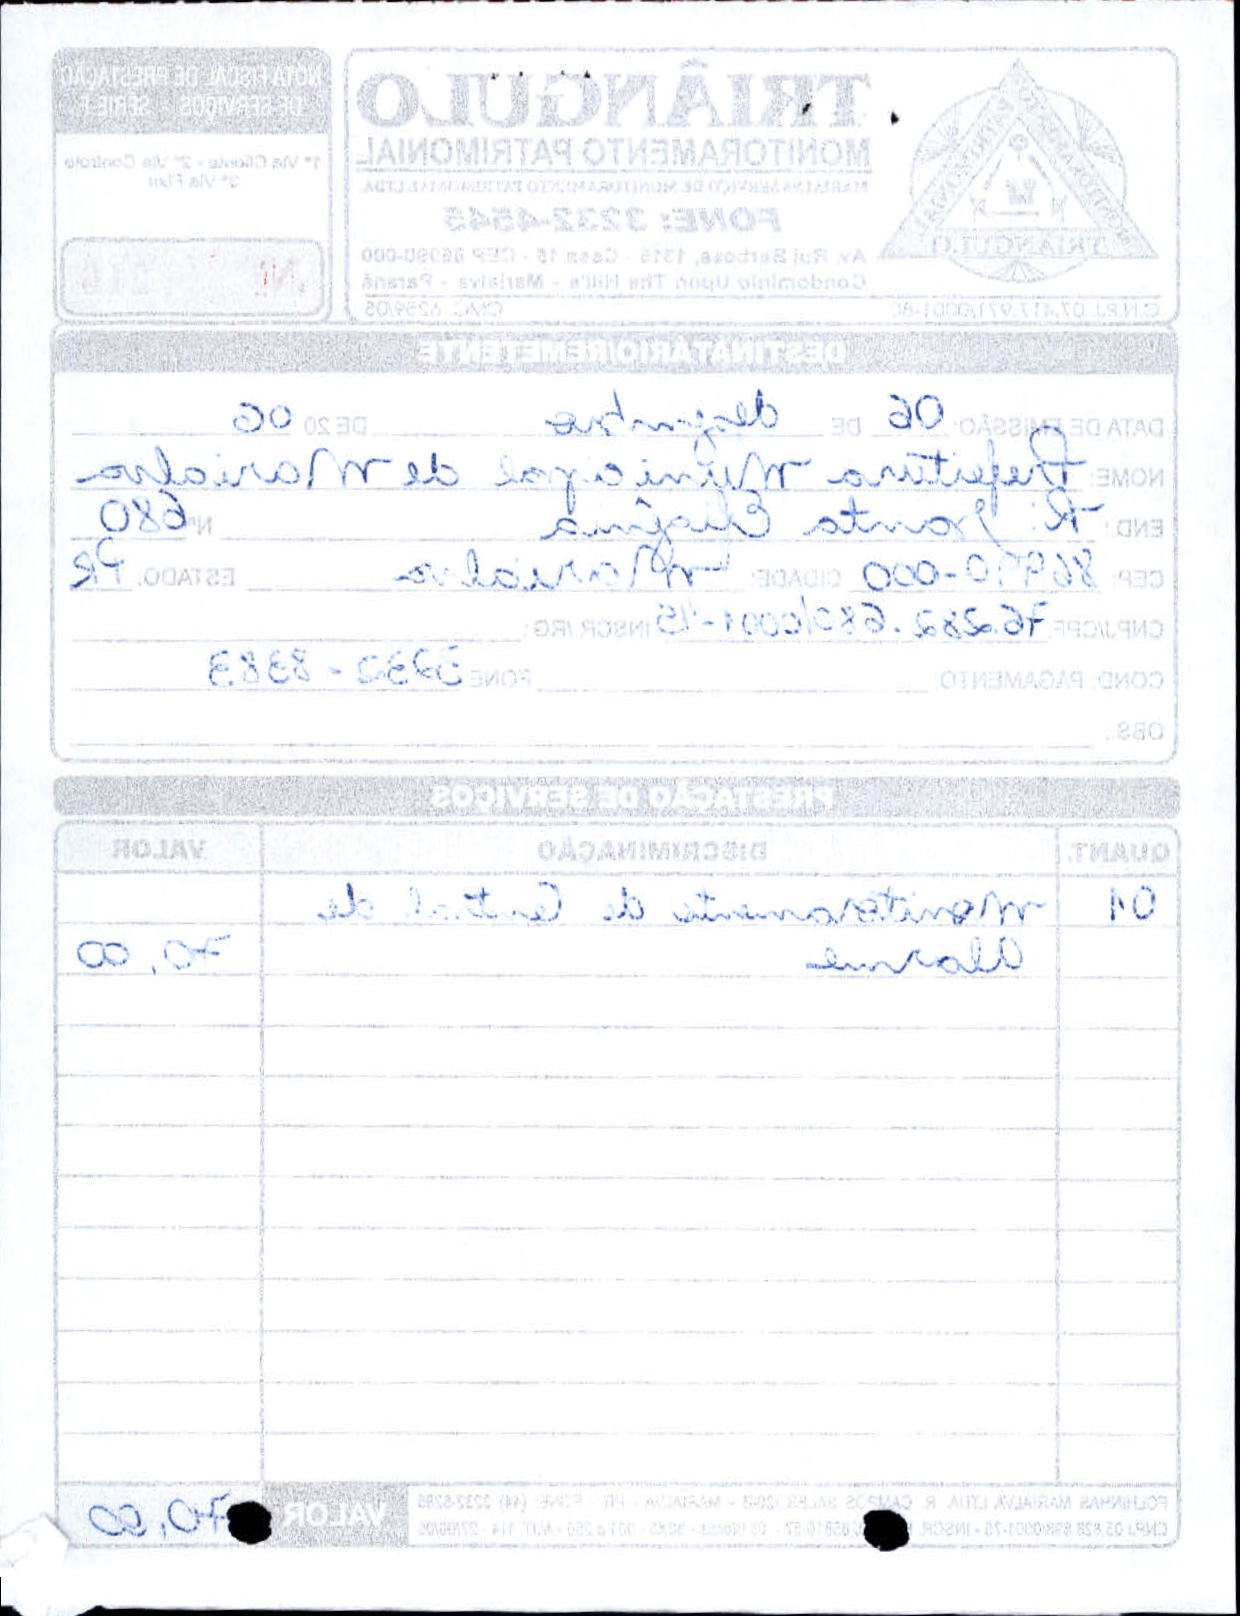 TRIÂNGULO
MONITORAMENTO PATRIMONIAL
MARIALVA SERVIÇO DE MONITORAMENTO PATRIMONIAL LTDA.
FONE: 3232-4545
Av. Rui Barbosa, 1315 - Casa 15 - CEP 86990-000
Condomínio Upon The Hill's - Marialva - Paraná
C.N.P.J. 07.417.971/0001-80 CMC. 6259/05
TRIÂNGULO
NOTA FISCAL DE PRESTAÇÃO
DE SERVIÇOS - SÉRIE F
1ª Via Cliente - 2ª Via Controle
3ª Via Fixa
Nº 216
DESTINATÁRIO/REMETENTE
DATA DE EMISSÃO: 06 DE dezembro DE 20 06
NOME: Prefeitura Municipal de Marialva
END.: R: Santa Efigênia Nº 680
CEP: 86990-000 CIDADE: Marialva ESTADO: PR
CNPJ/CPF 76.282.680/0001-45 INSCR/RG:
COND. PAGAMENTO FONE 3232-8383
OBS.:
PRESTAÇÃO DE SERVIÇOS
QUANT. DISCRIMINAÇÃO VALOR
01 Monitoramento de Central de
Alarme 70,00
FOLHINHAS MARIALVA LTDA. R. CAMPOS SALES - MARIALVA - PR - FONE: (44) 3232-5285
CNPJ 05.828.698/0001-75 - INSCR. - 001 a 250 - AUT. 114 - 27/09/05
VALOR 70,00